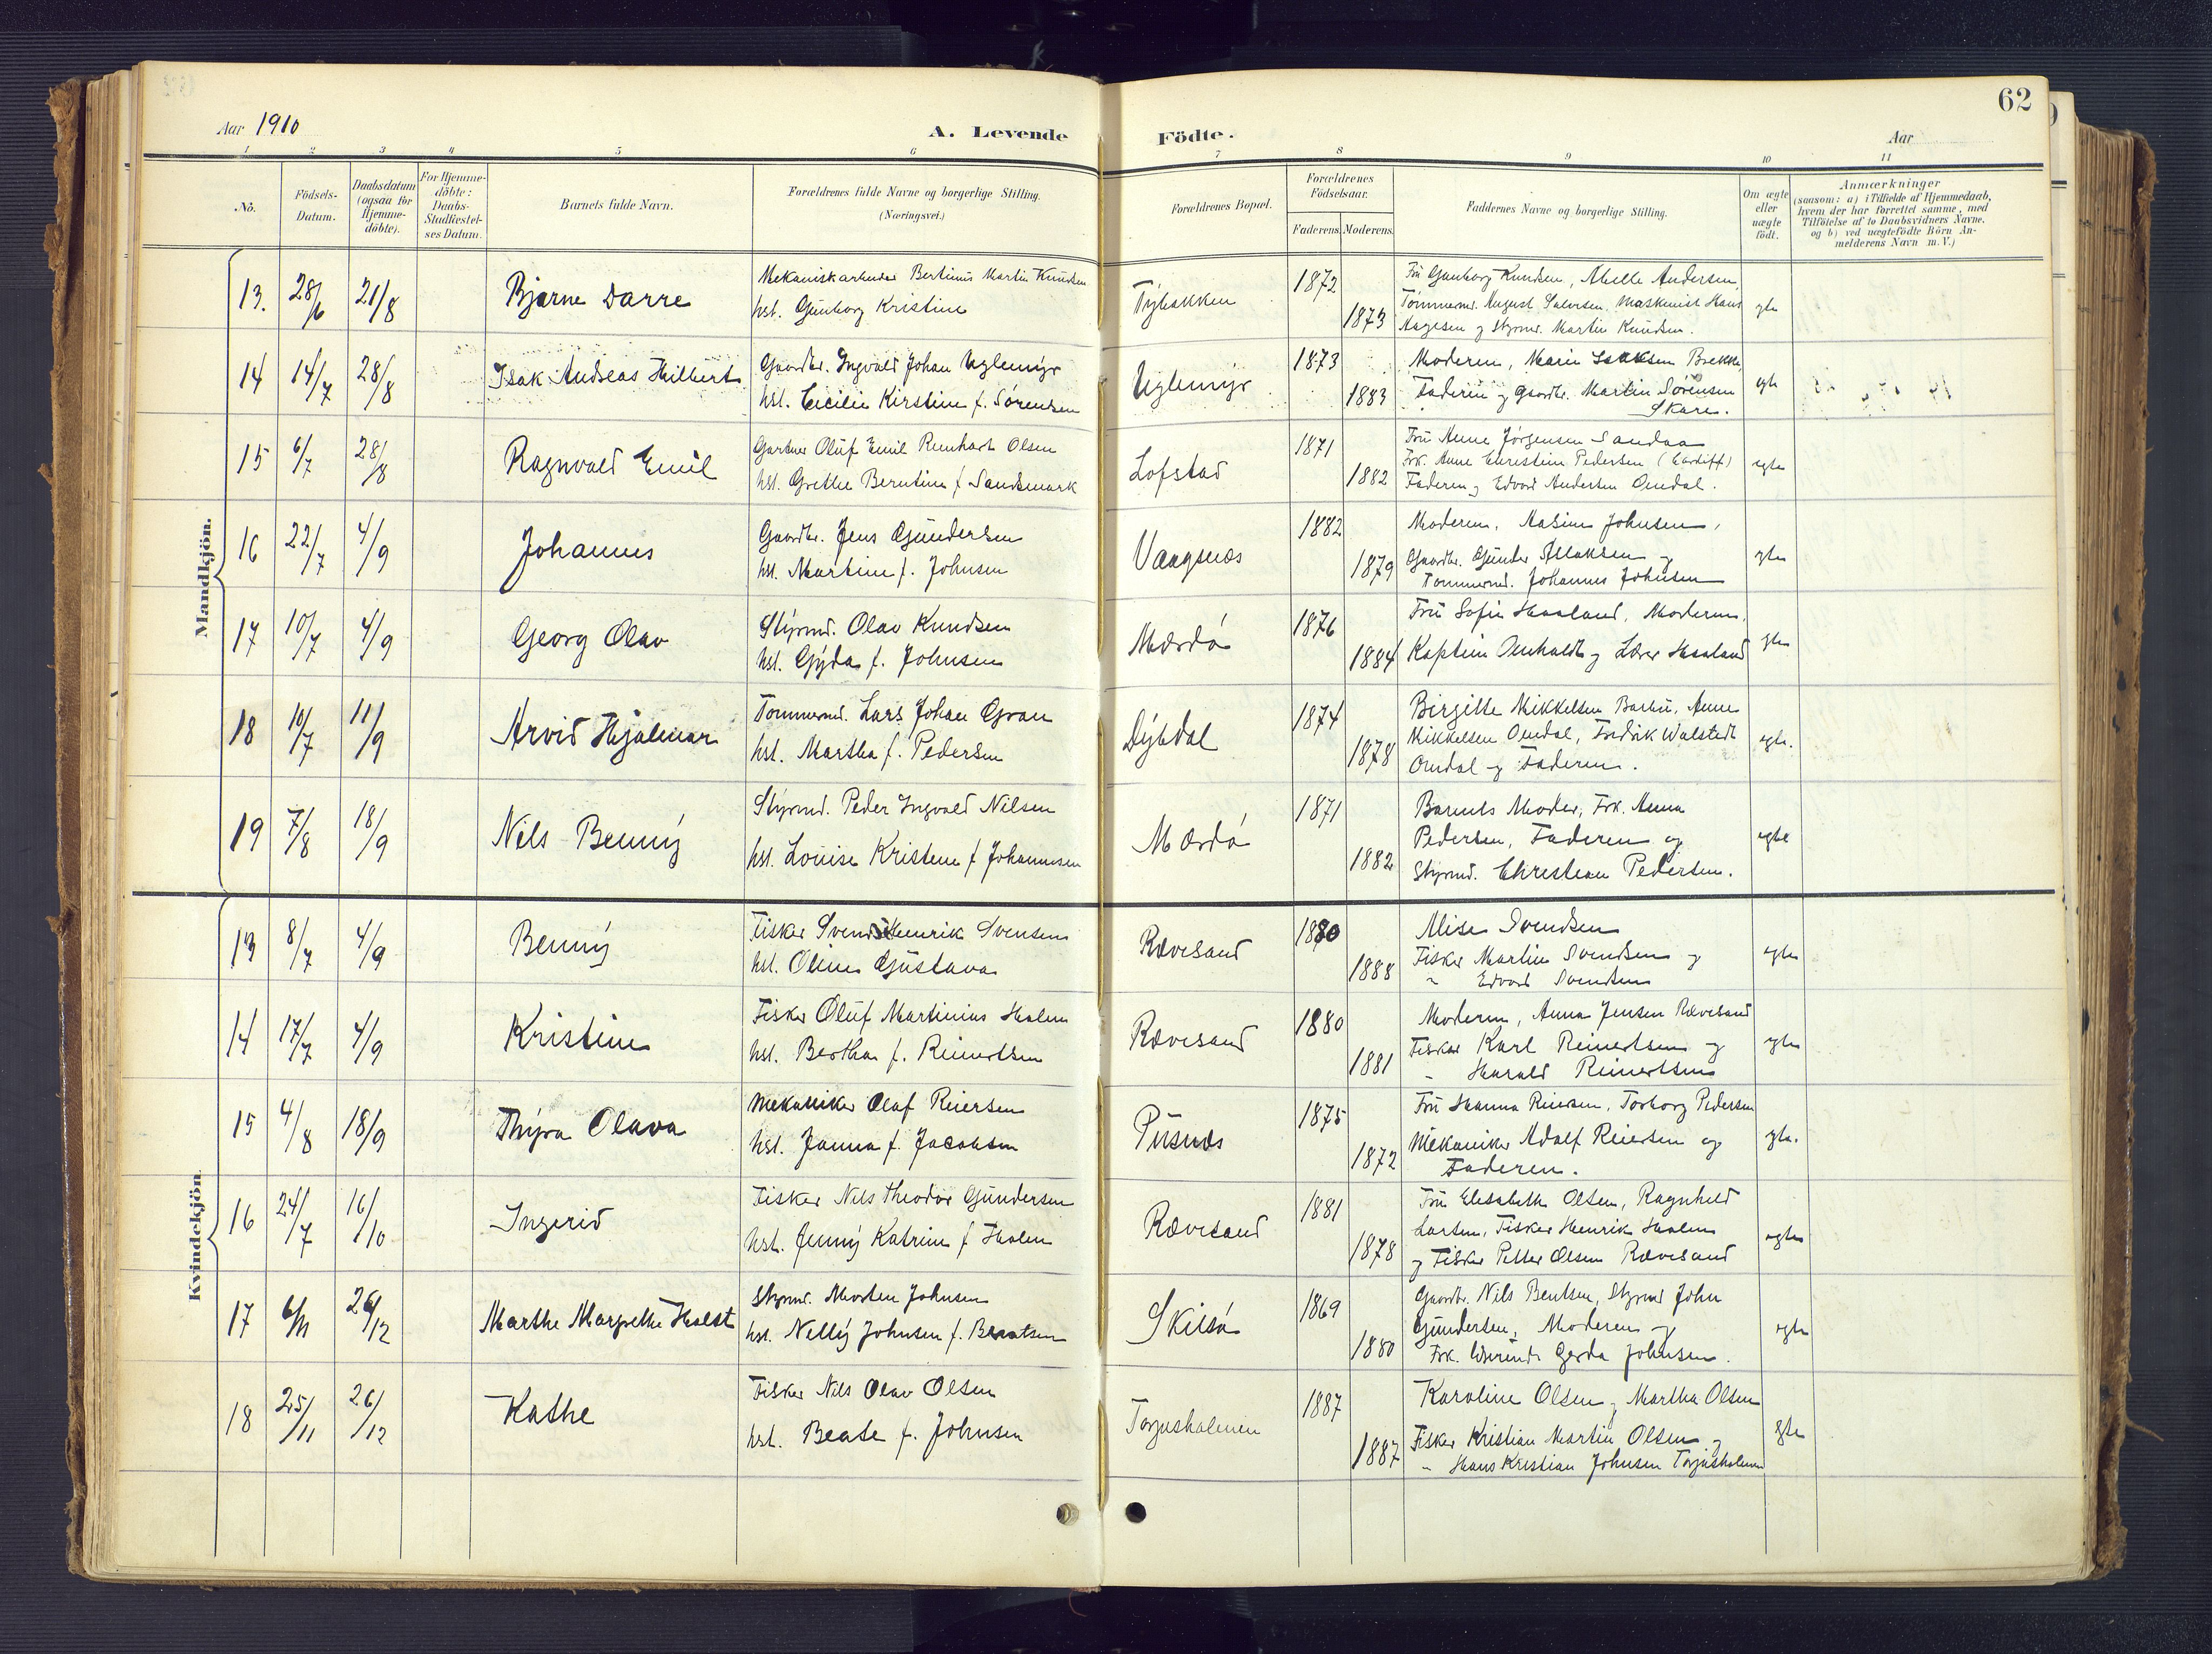 62
Aar 1910
A. Levende
Födte.
Aar
1 2 3 4 5 6 7 8 9 10 11
No.
Födsels-
Datum.
Daabsdatum
(ogsaa for
Hjemme-
döbte).
For Hjemme-
döbte:
Daabs-
Stadfæstel-
ses Datum.
Barnets fulde Navn.
Forældrenes fulde Navne og borgerlige Stilling.
(Næringsvei.)
Forældrenes Bopæl.
Forældrenes
Födselsaar.
Faderens. Moderens.
Faddernes Navne og borgerlige Stilling.
Om ægte
eller
uægte
födt.
Anmærkninger
(saasom: a) i Tilfælde af Hjemmedaab,
hvem der har forrettet samme, med
Tilföielse af to Daabsvidners Navne,
og b) ved uægtefödte Börn An-
melderens Navn m. V.)
Mandkjön.
13. 28/6 21/8 Bjarne Darre
Mekaniskarbeider Bertinus Martin Knudsen
hst. Gunborg Kristine
Tybakken 1872 1873
Fru Gunborg Knudsen, Abelle Andersen,
Tömmermd. August Salvesen, Maskinist Hans
Aagesen og Styrmd. Martin Knudsen.
gte
14 14/7 28/8 Isak Andreas Hilbert
Gaardbr. Ingvald Johan Uglemyr
hst. Cicilie Kirstine f. Sörensen
Uglemyr 1873 1883
Moderen, Marie Isaksen Brekke,
Faderen og Gaardbr. Martin Sörensen
Skare.
egte
15 6/7 28/8 Ragnvald Emil
Gartner Oluf Emil Reinhart Olsen
hst. Grethe Berntine f. Sandsmark
Lofstad 1871 1882
Fru Anne Jörgensen Sandaa
Frk. Anne Christine Pedersen (Cardiff)
Faderen og Edvard Andersen Omdal.
egte
16 22/7 4/9 Johannes
Gaardbr. Jens Gundersen
hst. Martine f. Johnsen
Vaagsnes 1882 1879
Moderen, Aasine Johnsen,
Gaardbr. Gunder Aslaksen og
Tömmermd. Johannes Johnsen
egte
17 10/7 4/9 Georg Olav
Styrmd. Olav Knudsen
hst. Gyda f. Johnsen
Mærdö 1876 1884
Fru Sofie Haaland, Moderen,
Kaptein Omholdt og Lærer Haaland
gte
18 10/7 11/9 Arvid Hjalmar
Tömmermd. Lars Johan Gran
hst. Martha f. Pedersen
Dybdal 1874 1878
Birgitte Mikkelsen Barbu, Anne
Mikkelsen Omdal, Fredrik Walstedt
Omdal og Faderen.
egte.
19 7/8 18/9 Nils Benny
Styrmd. Peder Ingvald Nilsen
hst. Louise Kristene f. Johannesen
Mærdö 1871 1882
Barnets Moder, Frk. Anna
Pedersen, Faderen og
Styrmd. Christian Pedersen.
egte
Kvindekjön
13 8/7 4/9 Benny
Fisker Svend Henrik Svensen
hst. Oline Gustava
Rævesand 1880 1888
Alise Svendsen
Fisker Martin Svendsen og
" Edvard Svendsen
egte
14 17/7 4/9 Kristine
Fisker Oluf Martinius Holm
hst. Bertha f. Reinertsen
Rævesand 1880 1881
Moderen, Anna Jensen Rævesand
Fisker Karl Reinertsen og
" Harald Reinertsen
egte
15 4/8 18/9 Thyra Olava
Mekaniker Olaf Reiersen
hst. Janna f. Jacobsen
Pusnes 1875 1872
Fru Hanna Reiersen, Torborg Pedersen
Mekaniker Adolf Reiersen og
Faderen.
egte.
16 24/7 16/10 Ingerid
Fisker Nils Theodor Gundersen
hst. Jenny Katrine f. Holm
Rævesand 1881 1878
Fru Elisabeth Olsen, Ragnhild
Larsen, Fisker Henrik Holm
og Fisker Petter Olsen Rævesand
egte
17 6/11 26/12 Marthe Margrethe Holst
Styrmd. Morten Johnsen
hst. Nelly Johnsen f. Berntsen
Skilsö 1869 1880
Gaardbr. Nils Bentsen, Styrmd John
Gundersen, Moderen og
Frk. Gerda Johnsen.
egte
18 25/11 26/12 Kathe
Fisker Nils Olav Olsen
hst. Beate f. Johnsen
Torjusholmen 1887 1887
Karoline Olsen, Martha Olsen
Fisker Kristian Martin Olsen og
" Hans Kristian Johnsen Torjusholmen
egte